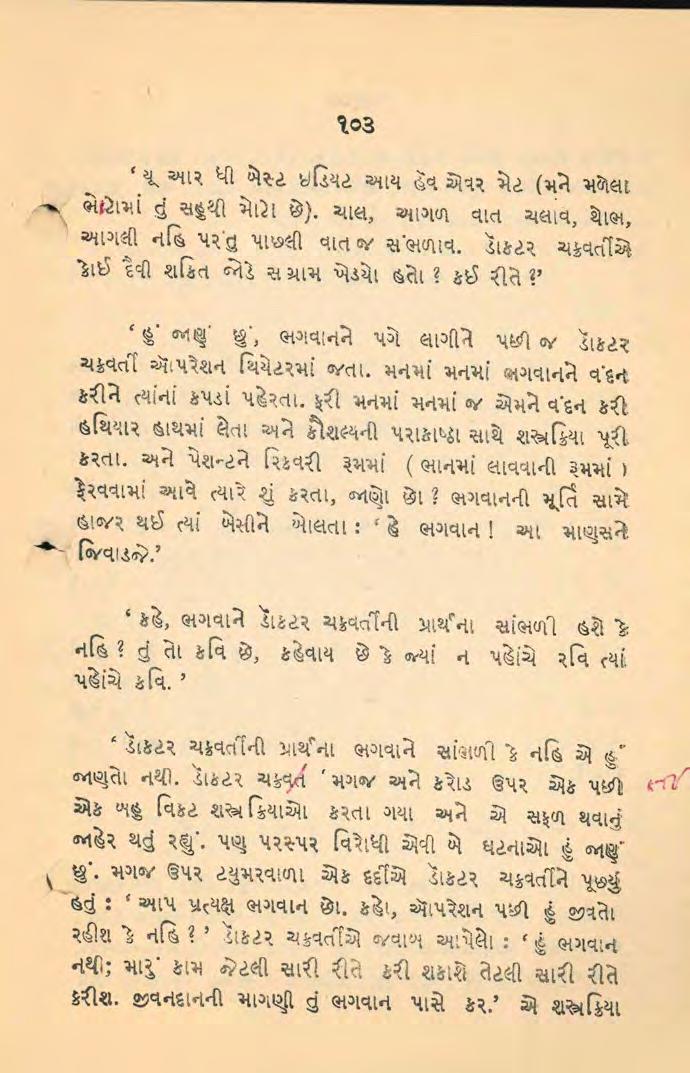 ૧૦૩
‘યૂ આર ધી બેસ્ટ ઇડિયટ આય હૅવ એવર મેટ (મને મળેલા
ભોટોમાં તું સહુથી મોટો છે). ચાલ, આગળ વાત ચલાવ, થોભ,
આગલી નહિ પરંતુ પાછલી વાત જ સંભળાવ. ડૉકટર ચક્રવર્તીએ
કોઈ દૈવી શકિત જોડે સગ્રામ ખેડયો હતો ? કઈ રીતે ?’
‘હું જાણું છું, ભગવાનને પગે લાગીને પછી જ ડૉકટર
ચક્રવર્તી ઑપરેશન થિયેટરમાં જતા. મનમાં મનમાં ભગવાનને વંદન
કરીને ત્યાંનાં કપડાં પહેરતા. ફરી મનમાં મનમાં જ એમને વંદન કરી
હથિયાર હાથમાં લેતા અને કૌશલ્યની પરાકાષ્ઠા સાથે શસ્ત્રક્રિયા પૂરી
કરતા. અને પેશન્ટને રિકવરી રૂમમાં ( ભાનમાં લાવવાની રૂમમાં )
ફેરવવામાં આવે ત્યારે શું કરતા, જાણો છો ? ભગવાનની મૂર્તિ સામે
હાજર થઈ ત્યાં બેસીને બોલતા : ‘ હે ભગવાન ! આ માણસને
જિવાડજે.’
‘કહે, ભગવાને ડૉકટર ચક્રવર્તીની પ્રાર્થના સાંભળી હશે કે
નહિ ? તું તો કવિ છે, કહેવાય છે કે જ્યાં ન પહોંચે રવિ ત્યાં
પહોંચે કવિ. ’
‘ ડૉકટર ચક્રવર્તીની પ્રાર્થના ભગવાને સાંભળી કે નહિ એ હું
જાણતો નથી. ડૉકટર ચક્રવર્ત ‘મગજ અને કરોડ ઉપર એક પછી
એક બહુ વિકટ શસ્ત્રક્રિયાઓ કરતા ગયા અને એ સફળ થવાનું
જાહેર થતું રહ્યું. પણ પરસ્પર વિરોધી એવી બે ઘટનાઓ હું જાણું
છું. મગજ ઉપર ટયુમરવાળા એક દર્દીએ ડૉકટર ચક્રવર્તીને પૂછ્યું
હતું : ‘ આપ પ્રત્યક્ષ ભગવાન છો. કહો, ઑપરેશન પછી હું જીવતો
રહીશ કે નહિ ? ’ ડૉકટર ચક્રવર્તીએ જવાબ આપેલો : ‘ હું ભગવાન
નથી; મારું કામ જેટલી સારી રીતે કરી શકાશે તેટલી સારી રીતે
કરીશ. જીવનદાનની માગણી તું ભગવાન પાસે કર.’ એ શસ્ત્રક્રિયા